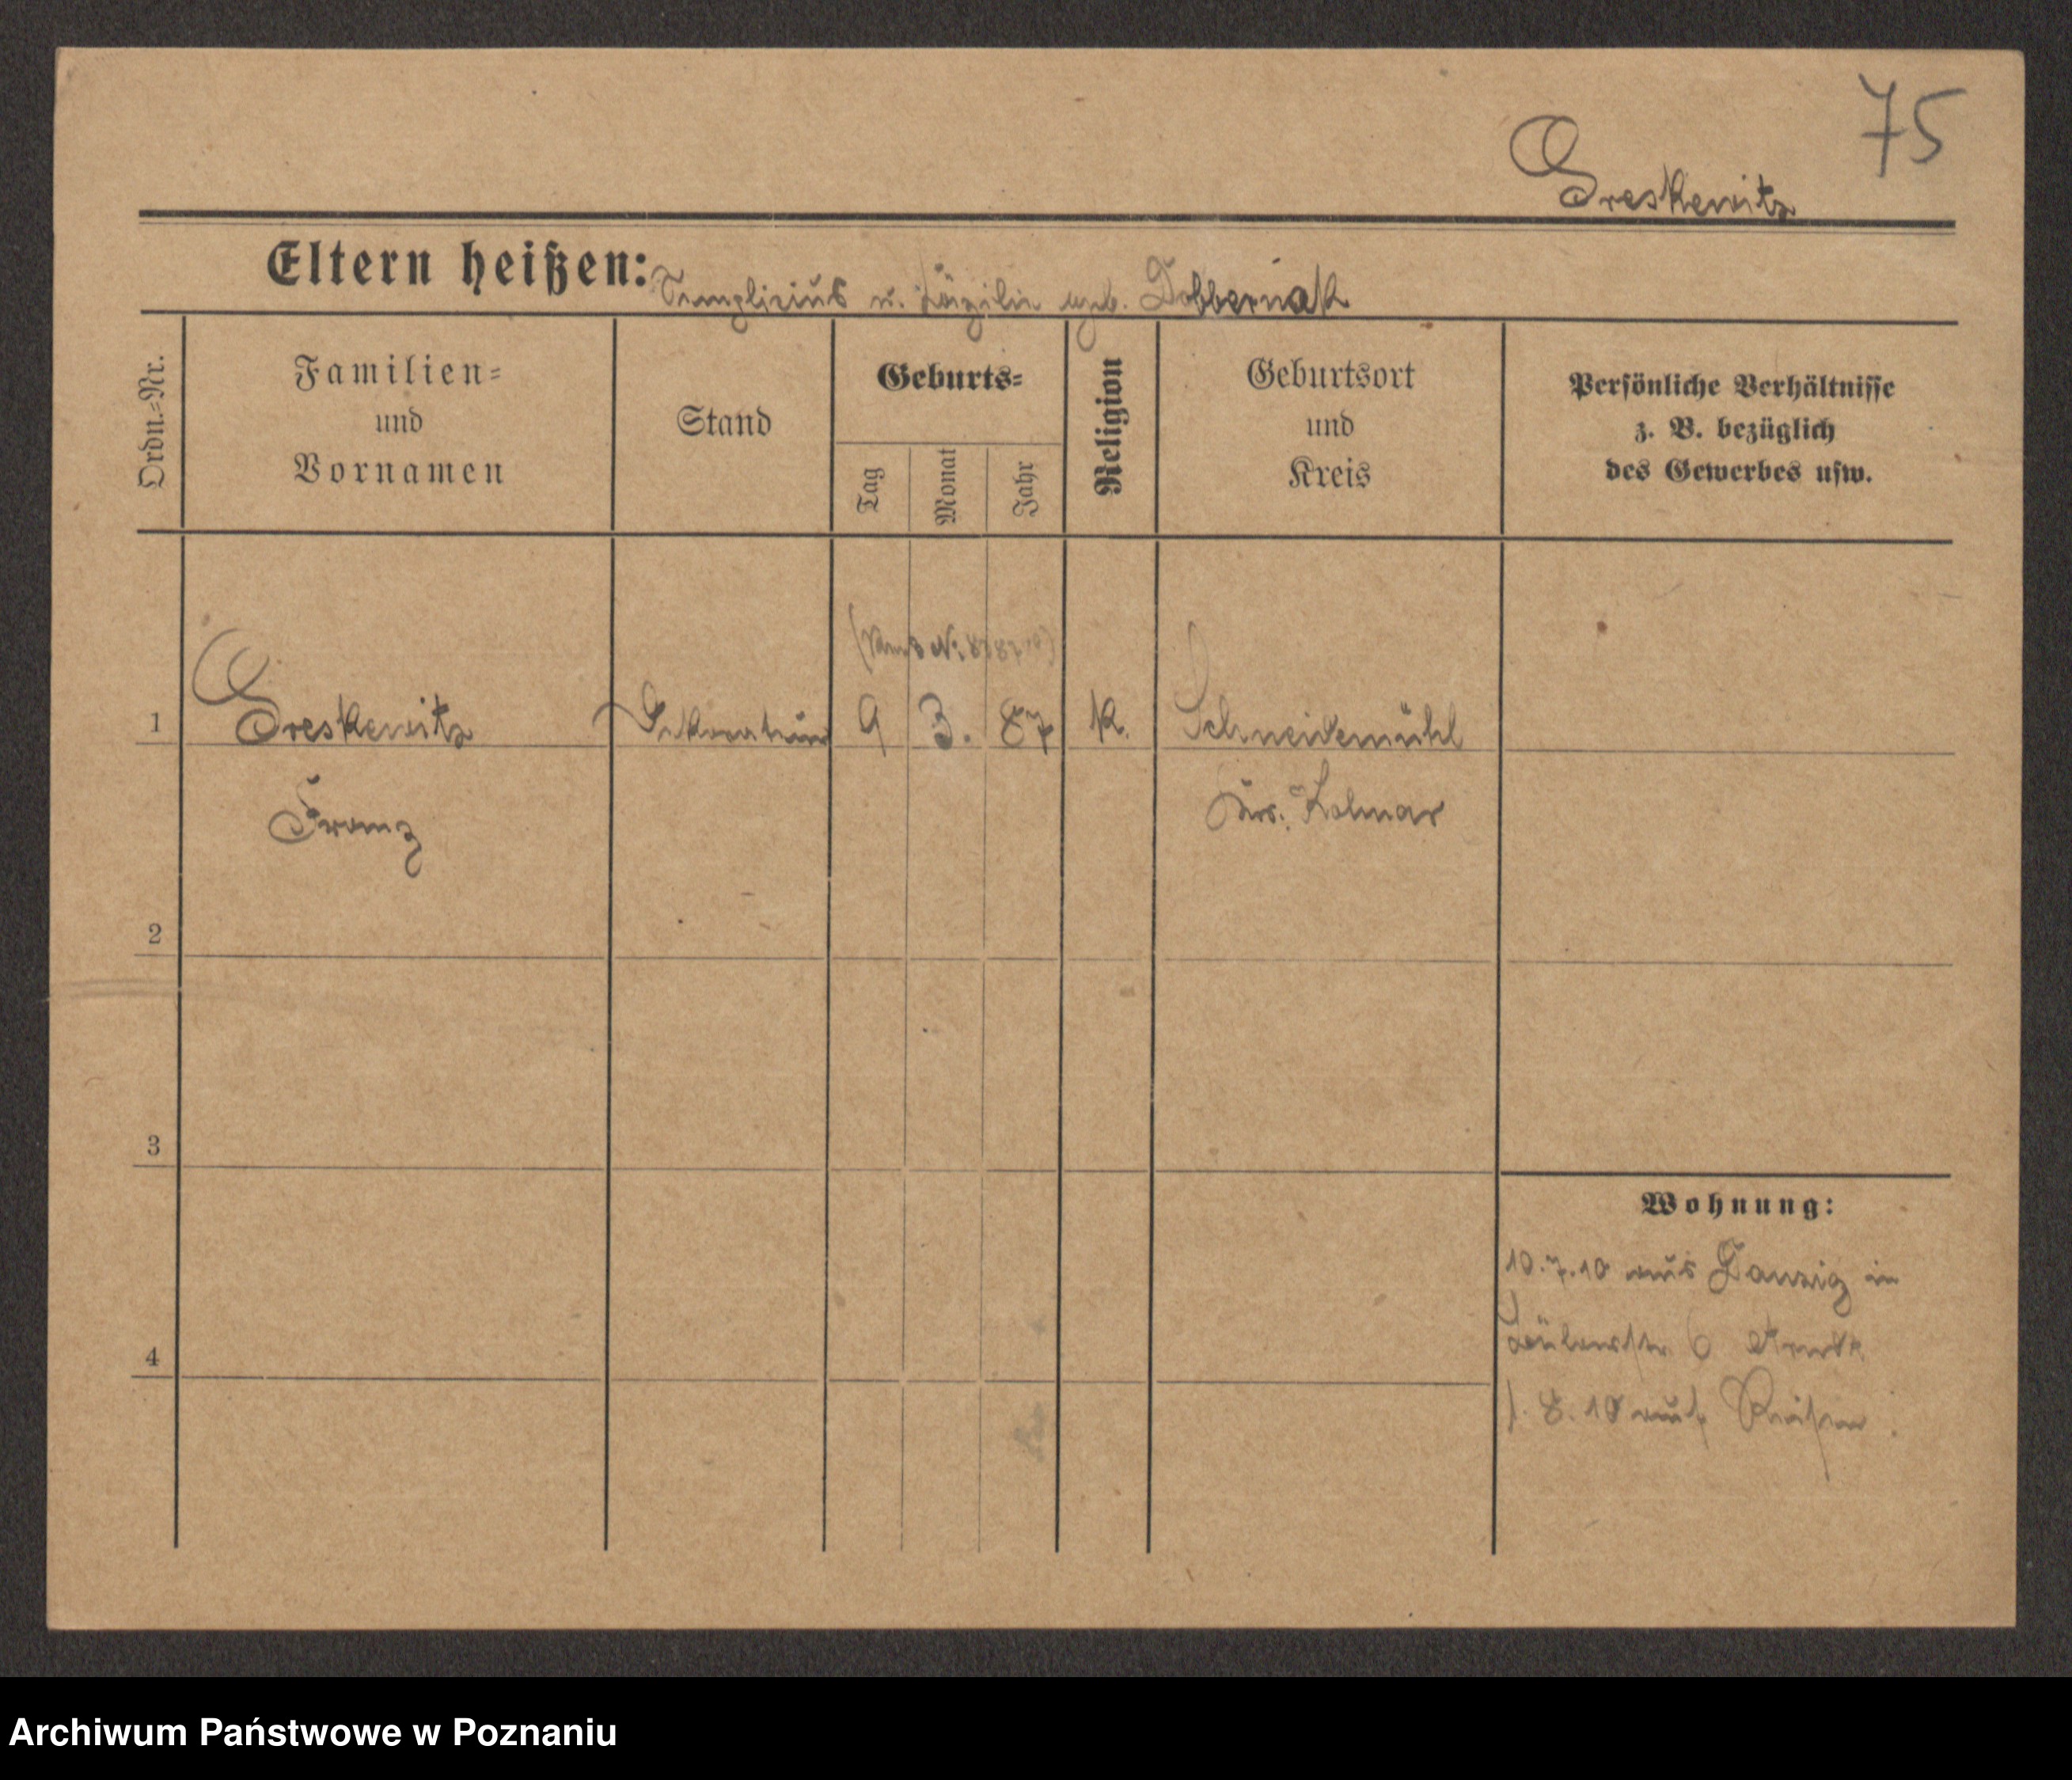 75
Greskewitz
Eltern heißen: Simplizius u. Cäzilie geb. Dobbernak
Ordn.-Nr.
Familien-
und
Vornamen
Stand
Geburts-
Tag
Monat
Jahr
Religion
Geburtsort
und
Kreis
Persönliche Verhältnisse
z. B. bezüglich
des Gewerbes usw.
1 Greskewitz Dekorateur 9 3. 87 K. Schneidemühl
Franz Krs. Kolmar
2
3
4
Wohnung:
10.7.10 aus Danzig in
6
1. 8. 10 auf Reisen.
Archiwum Państwowe w Poznaniu